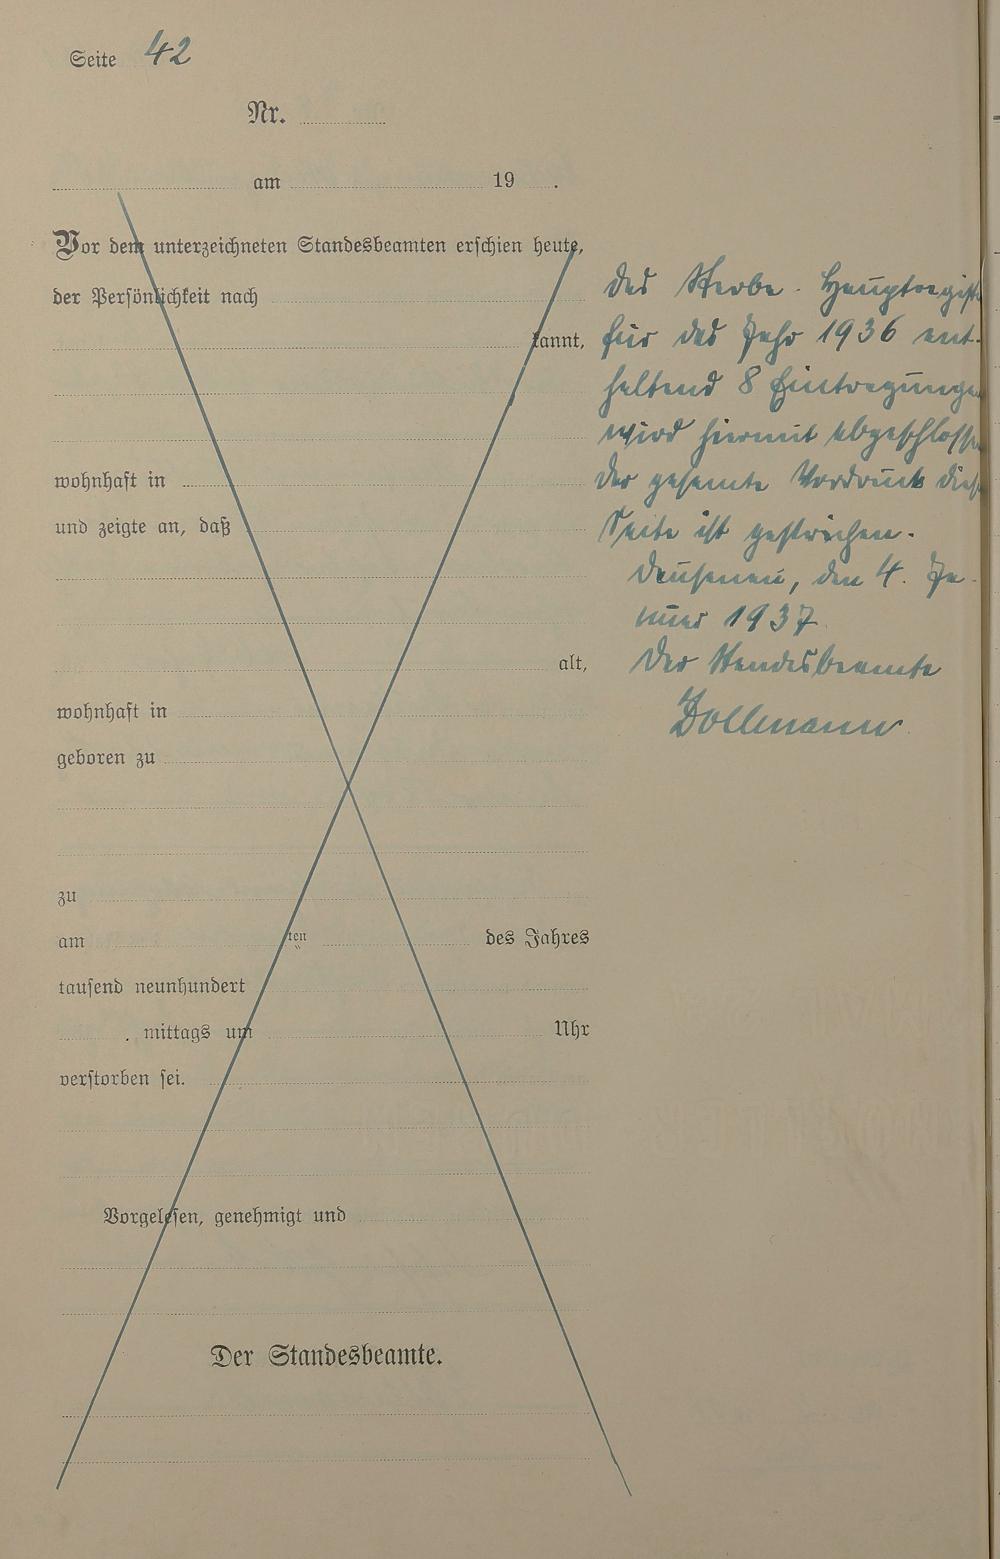 Seite 42
Nr.
am 19 .
Vor dem unterzeichneten Standesbeamten erschien heute,
der Persönlichkeit nach
kannt,
wohnhaft in
und zeigte an, daß
alt,
wohnhaft in
geboren zu
zu
am ten des Jahres
tausend neunhundert
. mittags um Uhr
verstorben sei.
Vorgelesen, genehmigt und
Der Standesbeamte.
Das Sterbe-Hauptregist
für das Jahr 1936 ent-
haltend 8 Eintragunge
wird hiermit abgeschlosse
Der gesamte Vordruck dies
Seite ist gestrichen.
Dausenau, den 4. Ja-
nuar 1937
Der Standesbeamte
Dollmann